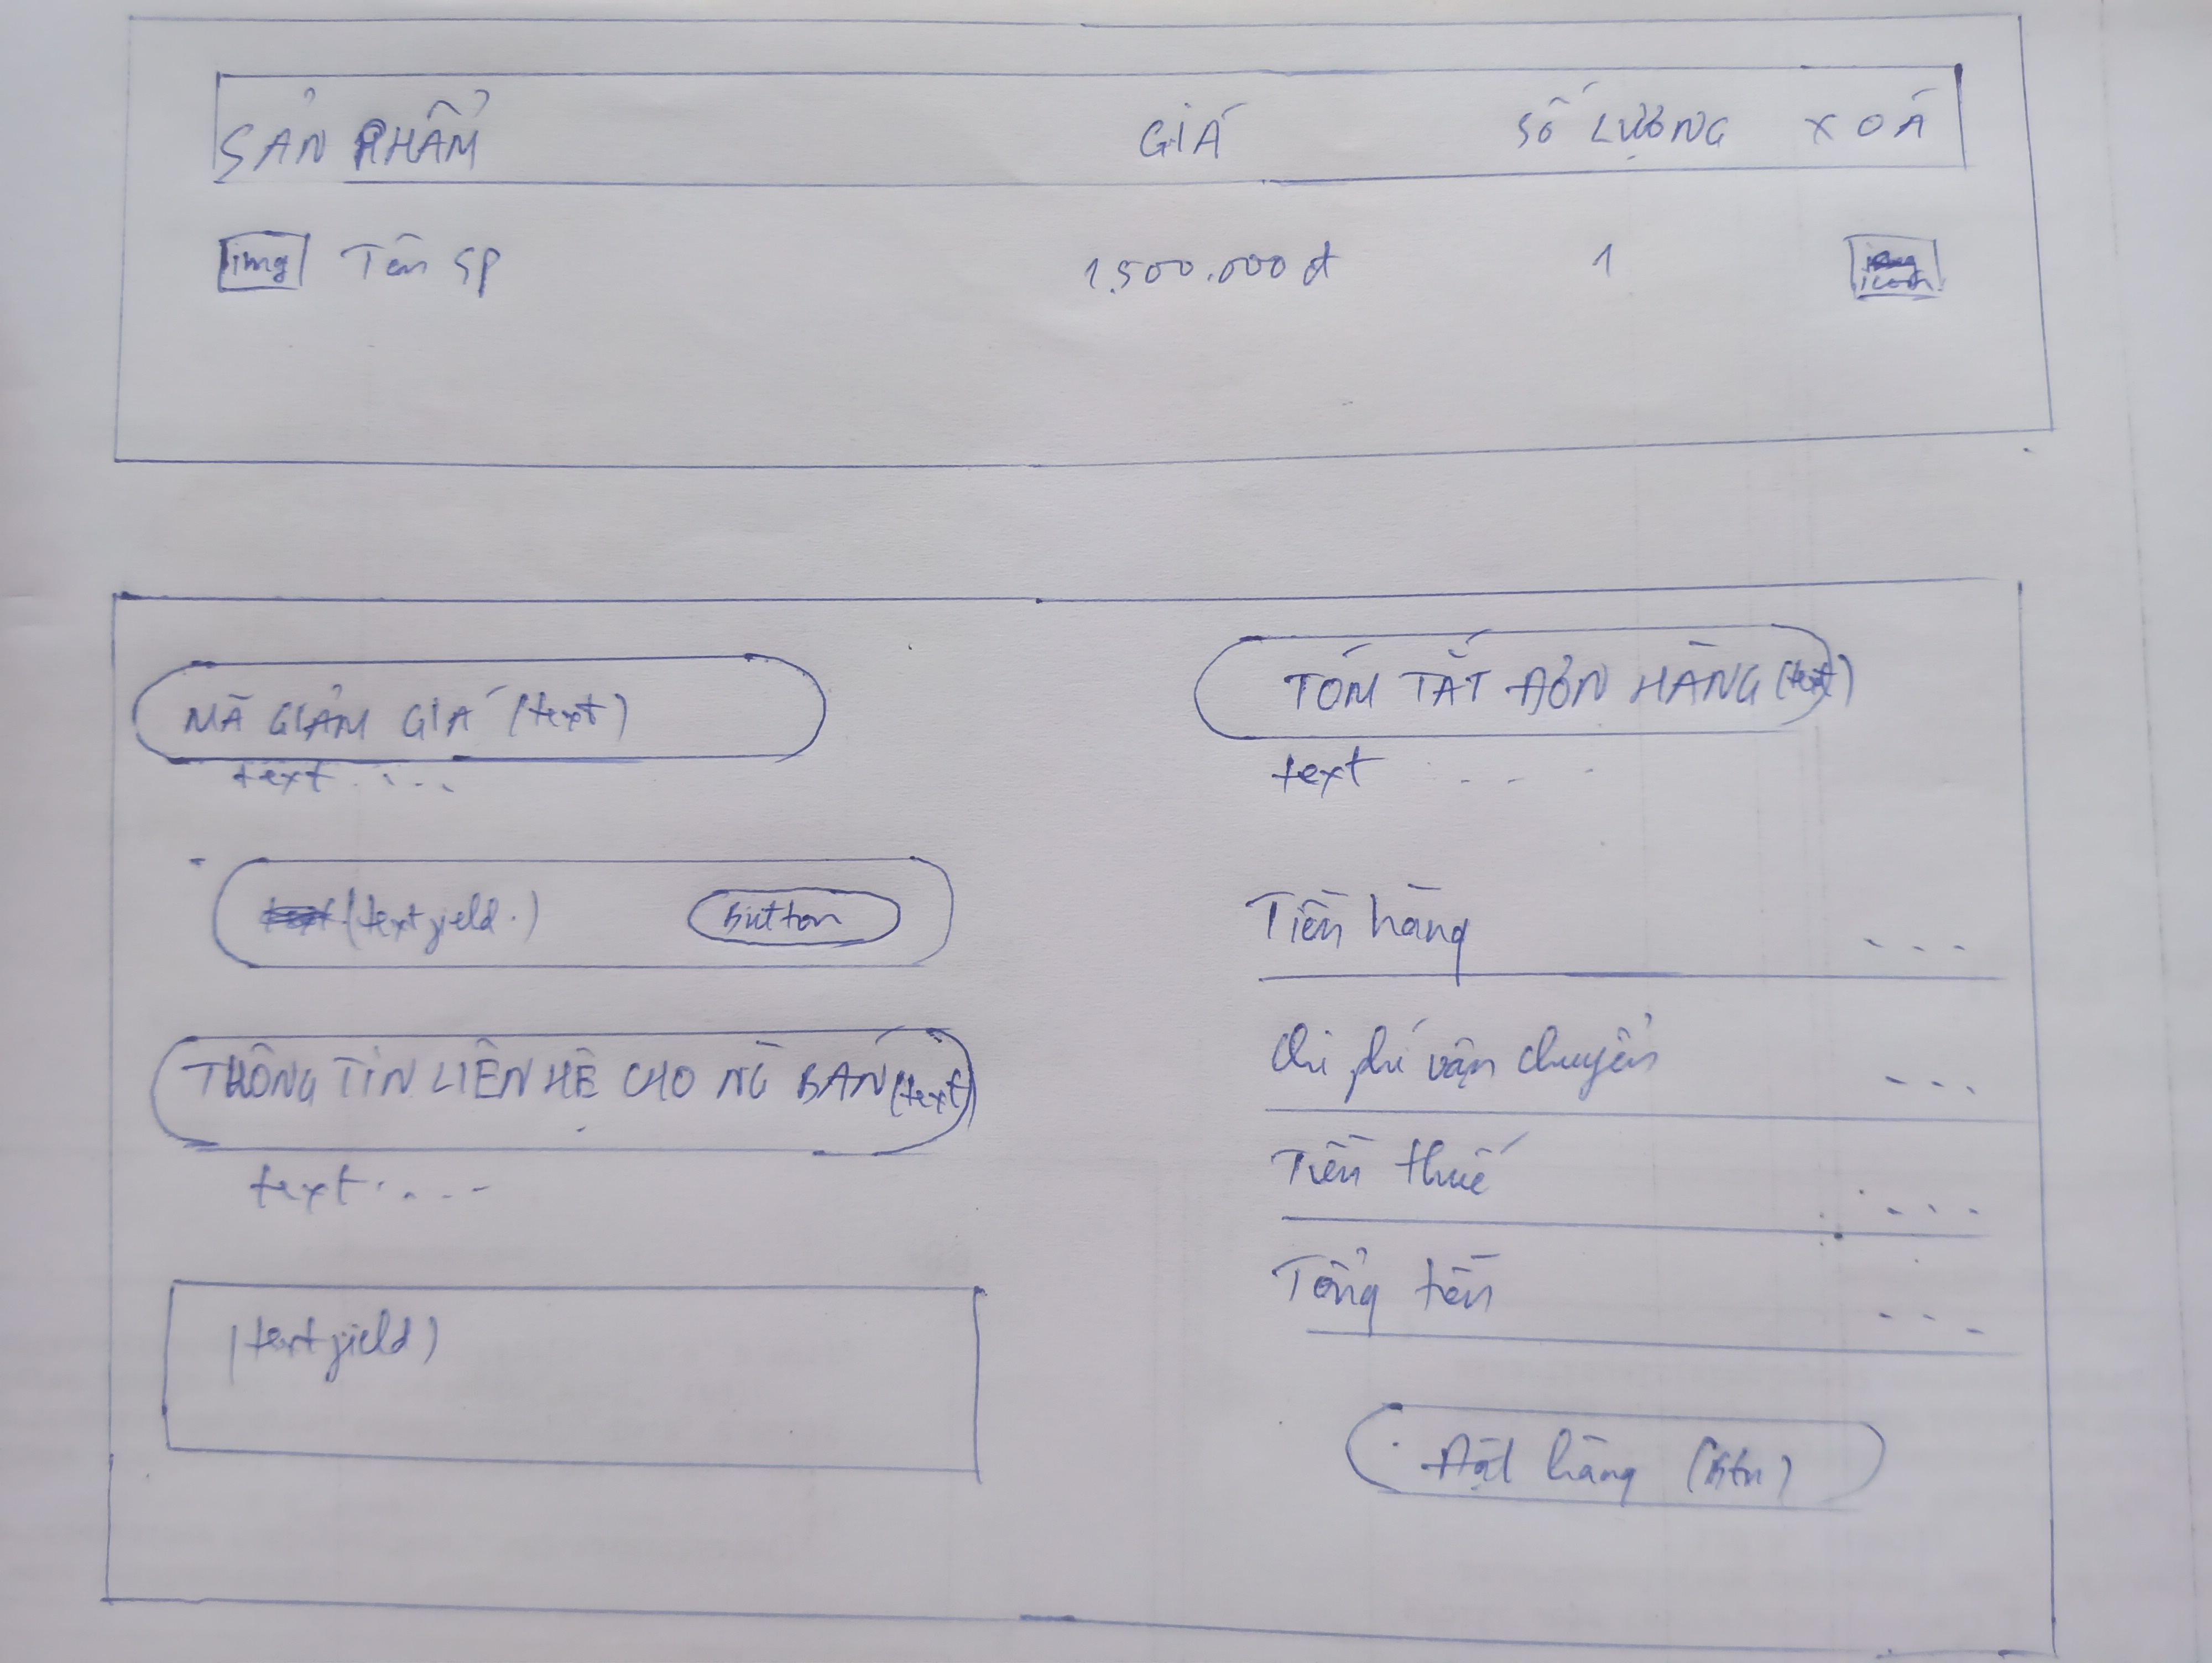 SẢN PHẨM GIÁ SỐ LƯỢNG XOÁ
img Tên SP 1.500.000 đ 1 icon
MÃ GIẢM GIÁ (text)
text ....
(textfield.) button
THÔNG TIN LIÊN HỆ CHO NG BÁN (text)
text ....
(textfield)
TÓM TẮT ĐƠN HÀNG (text)
text ...
Tiền hàng ...
Chi phí vận chuyển ...
Tiền thuế ...
Tổng tiền ...
Đặt hàng (btn)